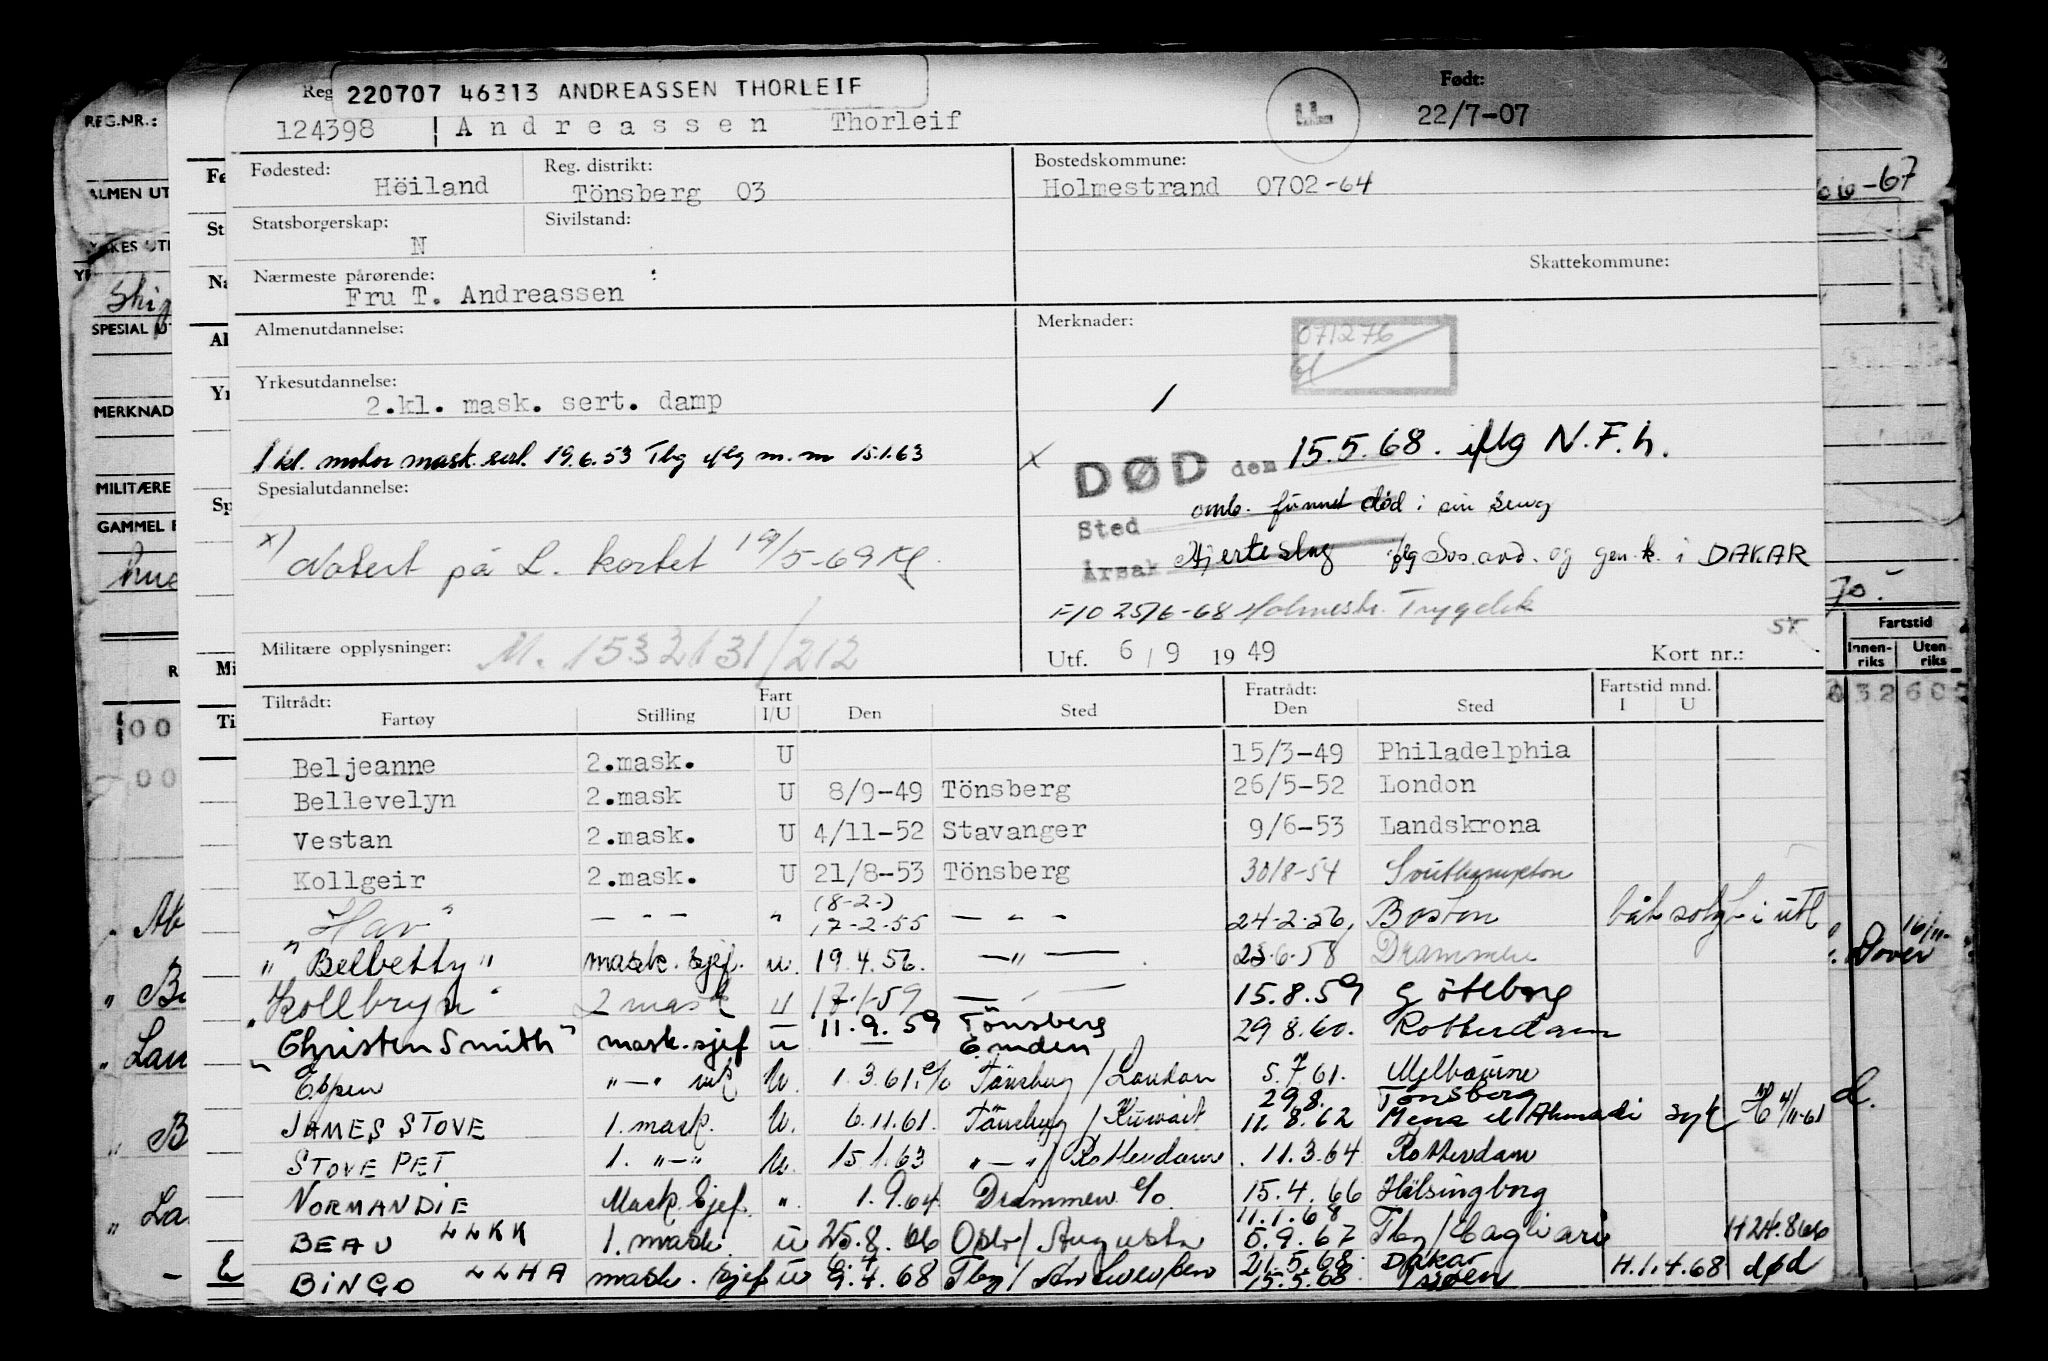 220707 46313 ANDREASSEN THORLEIF
Reg
Født:
124398 Andreassen Thorleif
22/7-07
REG.NR.:
Fødested: Höiland
Reg. distrikt: Tönsberg 03
Bostedskommune:
Holmestrand 0702-64
-67
ALMEN UT
Statsborgerskap: N
Sivilstand:
Skattekommune:
Nærmeste pårørende:
Fru T. Andreassen
SPESIAL UT
Almenutdannelse:
Merknader:
071276
Yrkesutdannelse:
2.kl. mask. sert. damp
1 kl. motor mask. sert. 19.6.53 Tbg iflg m.m 15.1.63
MERKNAD
x DØD den 15.5.68. iflg N.F.h.
MILITÆRE
Spesialutdannelse:
Sted omb. funnet død i sin seng
GAMMEL
x) Notert på L. kortet 19/5-69
Årsak Hjerteslag iflg Sos.avd. og gen.k. i DAKAR
F/O 25/6-68 Holmestr. Trygdek
70.-
Militære opplysninger: M. 1532131/212
Utf. 6/9 1949
Kort nr.:
Fartstid
Innen-riks Uten riks
Tiltrådt:
Fartøy Stilling Fart I/U Den Sted
Fratrådt: Den Sted Fartstid mnd. I U
Beljeanne 2.mask. U 15/3-49 Philadelphia
Bellevelyn 2.mask U 8/9-49 Tönsberg 26/5-52 London
Vestan 2.mask. U 4/11-52 Stavanger 9/6-53 Landskrona
Kollgeir 2.mask. U 21/8-53 Tönsberg 30/8-54 Southampton
"Hav" - - - " (8-2-) 17-2-55 - " - 24-2-56, Boston båt solgt i utl
"Belbetty" mask. sjef. u. 19.4.56. -"- 23.6-58 Drammen
"Kollbryn" 2 mask u 17-1-59 - " - 15.8.59 Göteborg
"Christen Smith" mask.sjef u 11.9.59 Tönsberg Emden 29 8.60. Rotterdam
Espen "-" vik U. 1.3.61. c/o Tönsberg/London 5.7 61. Melbourne
29 8. Tönsberg
JAMES STOVE 1. mask. U. 6.11.61. Tönsberg/Kuwait 11.8.62 Mena el Ahmadi syk H 4/11-61
STOVE PET 1. "-" U. 15.1.63 "-"/Rotterdam 11.3.64 Rotterdam
NORMANDIE Mask.Sjef. " 1.9.64 Drammen c/o. 15.4.66 Hälsingborg
11.1.68
BEAU LLKK 1. mask. u 25.8.66 Oslo/Augusta 5.9.67 Tbg/Cagliari H 24.8 66
21.5.68. Dakar
BINGO LLHA mask. sjef u 9.4.68 Tbg/Antwerpen 15.5.68. sjøen H.1.4.68 død